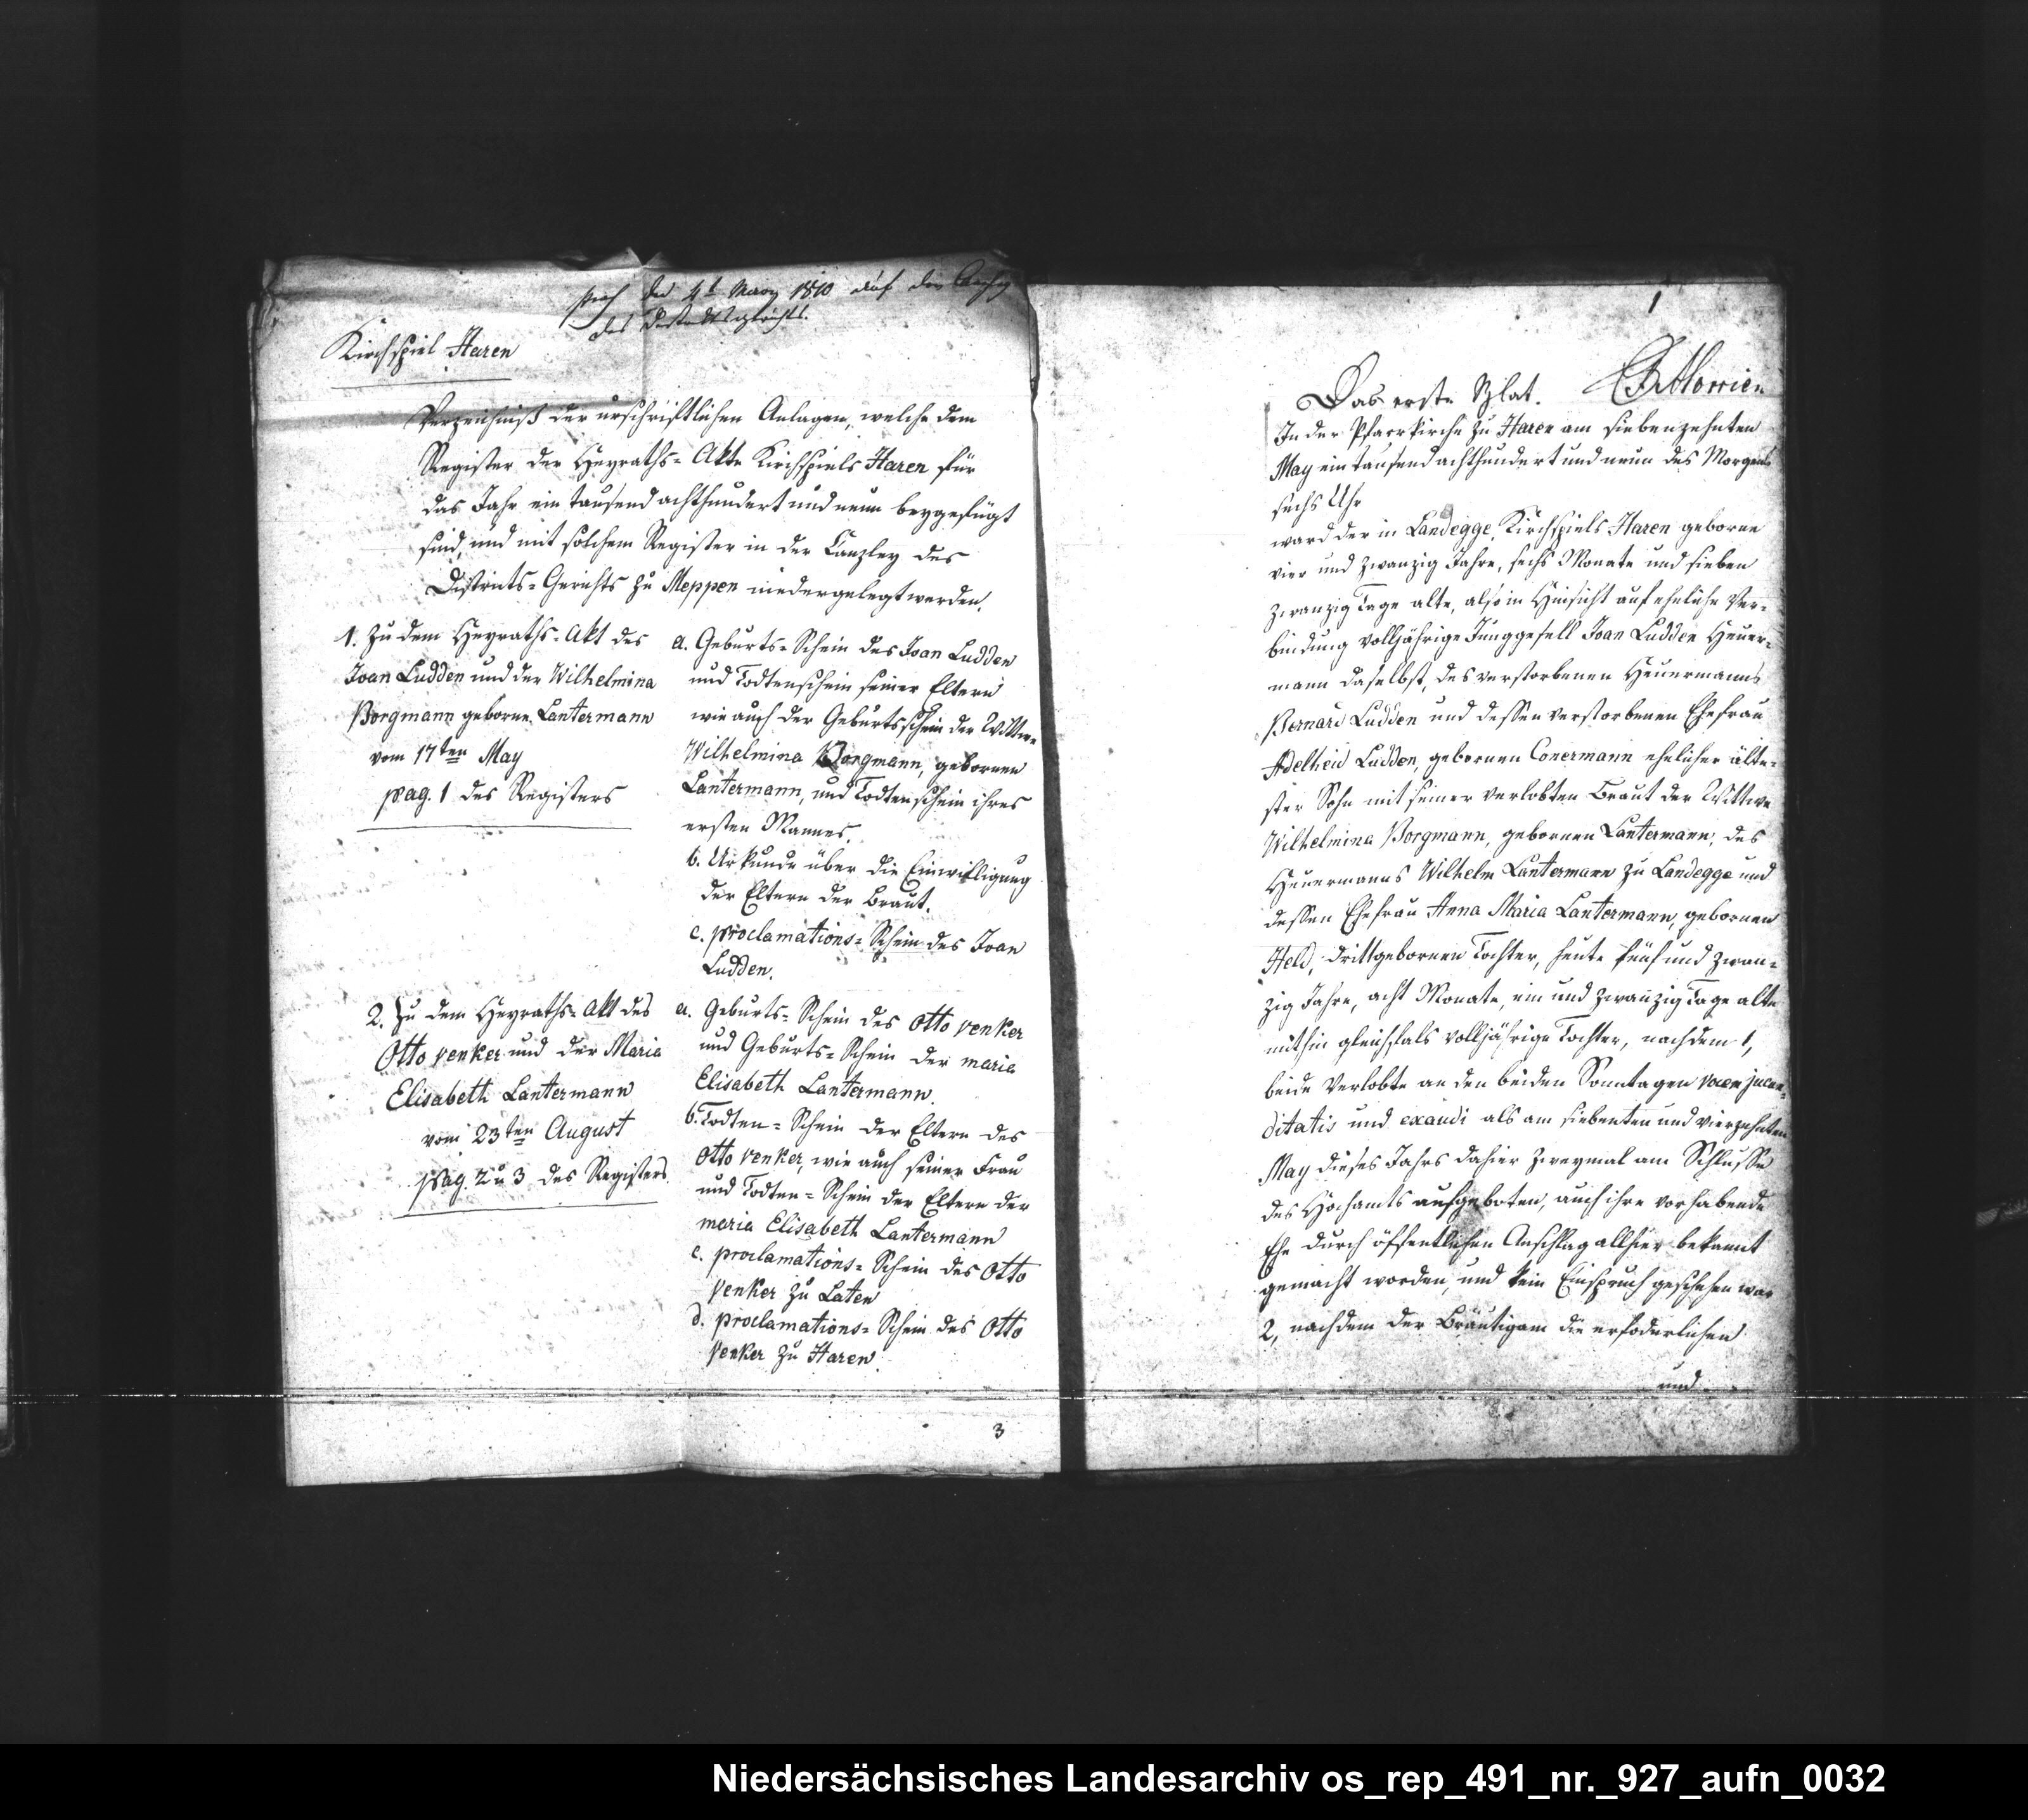 den 4t März 1810 auf der
des
Kirchspiel Haren
Verzeichniß der urschriftlichen Anlagen, welche dem
Register der Heyraths-Akte Kirchspiels Haren für
das Jahr ein tausend achthundert und neun beygefügt
sind, und mit solchem Register in der Canzley des
Districts-Gerichts zu Meppen niedergelegt werden.
1. Zu dem Heyraths-Akt des
Joan Ludden und der Wilhelmina
Borgmann geborne Lantermann
vom 17ten May
pag. 1 des Registers
a. Geburts-Schein des Joan Ludden
und Todtenschein seiner Eltern
wie auch der Geburtsschein der Wittwe
Wilhelmina Borgmann, gebornen
Lantermann, und Todtenschein ihres
ersten Mannes.
b. Urkunde über die Einwilligung
der Eltern der Braut.
c. proclamations-Schein des Joan
Ludden.
2. Zu dem Heyraths-Akt des
Otto Venker und der Maria
Elisabeth Lantermann
vom 23ten August
pag. 2 u 3 des Registers
a. Geburts-Schein des Otto Venker
und Geburts-Schein der maria
Elisabeth Lantermann.
b. Todten-Schein der Eltern des
Otto Venker, wie auch seiner Frau
und Todten-Schein der Eltern der
maria Elisabeth Lantermann
c. proclamations-Schein des Otto
Venker zu Laten
d. proclamations-Schein des Otto
Venker zu Haren.
3
1
Das erste Blat.
In der Pfarrkirche zu Haren am siebenzehnten
May ein tausend achthundert und neun des Morgens
sechs Uhr
ward der in Landegge, Kirchspiels Haren geborne
vier und zwanzig Jahre, sechs Monate und sieben
zwanzig Tage alte, also in Hinsicht auf eheliche Ver-
bindung volljährige Junggesell Joan Ludden Heuer-
mann daselbst, des verstorbenen Heuermanns
Bernard Ludden und dessen verstorbenen Ehefrau
Adelheid Ludden, gebornen Conermann ehelicher älte-
ster Sohn mit seiner verlobten Braut der Wittwe
Wilhelmina Borgmann, gebornen Lantermann, des
Heuermanns Wilhelm Lantermann zu Landegge und
dessen Ehefrau Anna Maria Lantermann, gebornen
Held, drittgebornen Tochter, heute fünf und zwan-
zig Jahre, acht Monate, ein und zwanzig Tage alte
mithin gleichfals volljährige Tochter, nachdem 1,
beide Verlobte an den beiden Sonntagen vocem jucun-
ditatis und exaudi als am siebenten und vierzehnten
May dieses Jahrs dahier zweymal am Schlusse
des Hochamts aufgeboten, auch ihre vorhabende
Ehe durch öffentlichen Anschlag allhier bekannt
gemacht worden, und kein Einspruch geschehen war
2, nachdem der Bräutigam die erfoderlichen
und
Niedersächsisches Landesarchiv os_rep_491_nr._927_aufn_0032